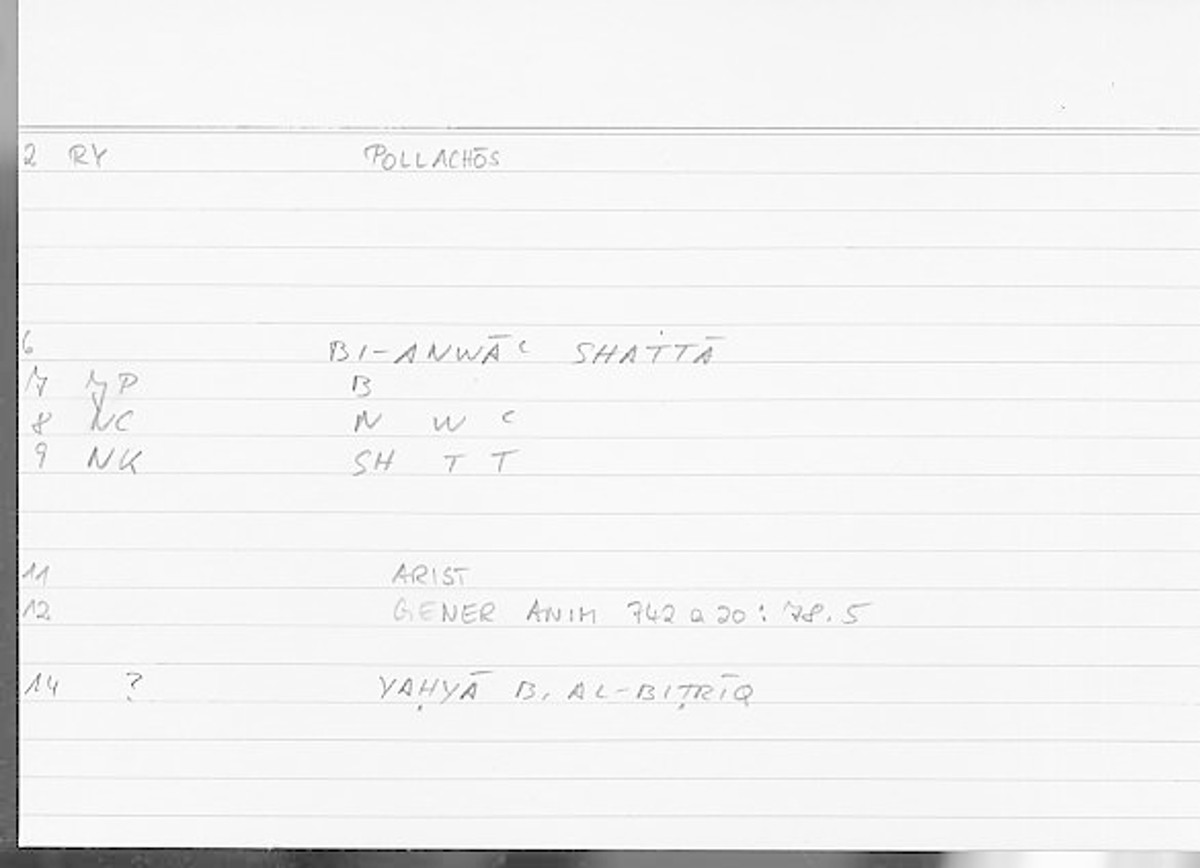 2 RY POLLACHŌS
6 BI-ANWĀʿ SHATTĀ
7 JP B
8 NC N W ʿ
9 NK SH T T
11 ARIST
12 GENER ANIM 742 a 20 : 78.5
14 ? YAḤYĀ B. AL-BIṬRĪQ